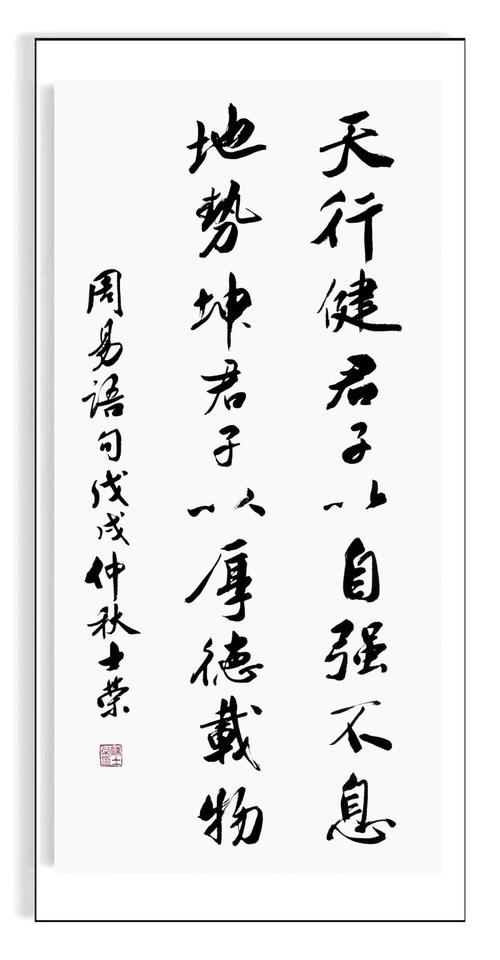 天行健君子以自强不息
地勢坤君子以厚德載物
周易語句戊戌仲秋士榮